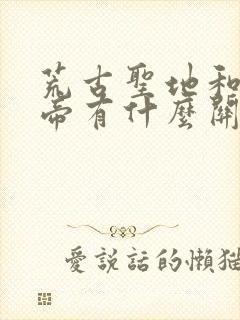 荒古聖地和
帝有什麼關
愛說話的懶猫